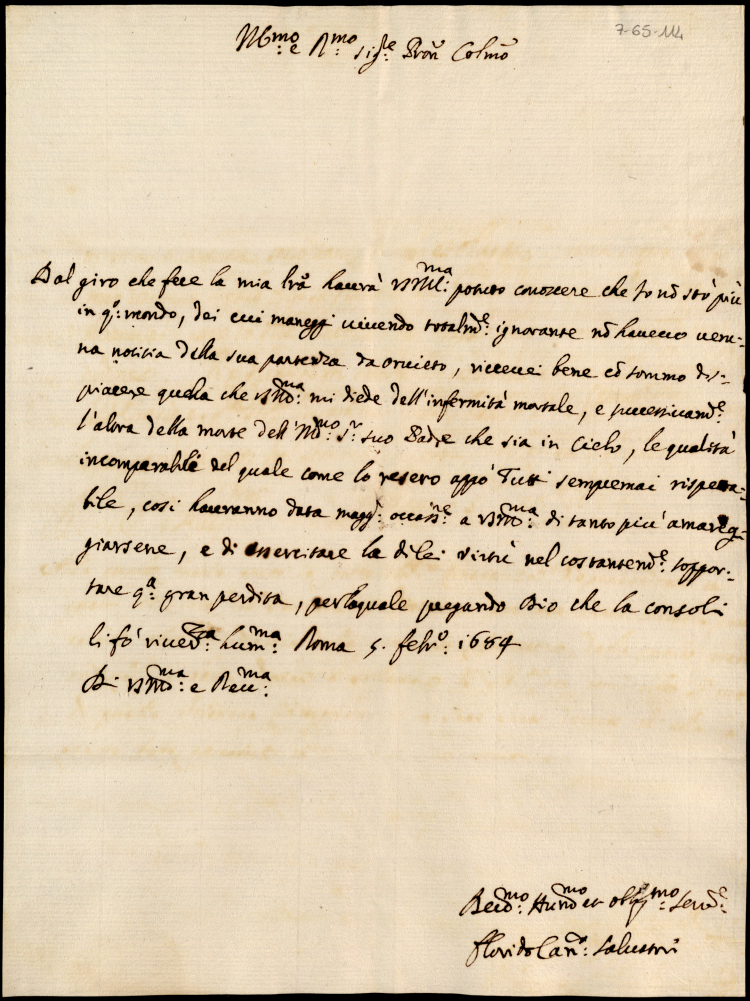 7-65-114
Ill:mo e R:mo Sig:re Pron Colmo
Dal giro che fece la mia lra haverà VSIll:ma potuto conoscere che Io nō stò più
in q:o mondo, dei cui maneggi vivendo totalm:e ignorante nō havevo veru-
na notitia della sua partenza da Orvieto, ricevei bene cō sommo dis-
piacere quella che VSIll:ma mi diede dell'infermità mortale, e successivam:e
l'altra della morte dell'Ill:mo S:r suo Padre che sia in Cielo, le qualità
incomparabili del quale come lo resero appō Tutti sempremai rispetta-
bile, così haveranno data magg:r occāne a VSIll:ma di tanto più amareg-
giarsene, e di essercitare la di lei virtù nel costantem:e soppor-
tare q:a gran perdita, per la quale pregando Dio che la consoli
li fò river:za hum:ma Roma 5. febr:o 1684
Di VSIll:ma e Rev:ma
Dev:mo Hum:mo et obl:mo Serv:e
Florido Can:o Salustri